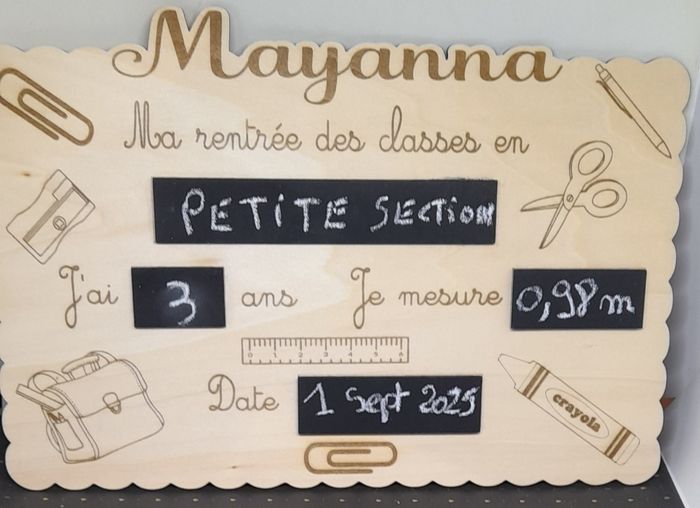 Mayanna
Ma rentrée des classes en
PETITE SECTION
J'ai 3 ans Je mesure 0,98 m
0 1 2 3 4 5 6
Date 1 Sept 2025
crayola